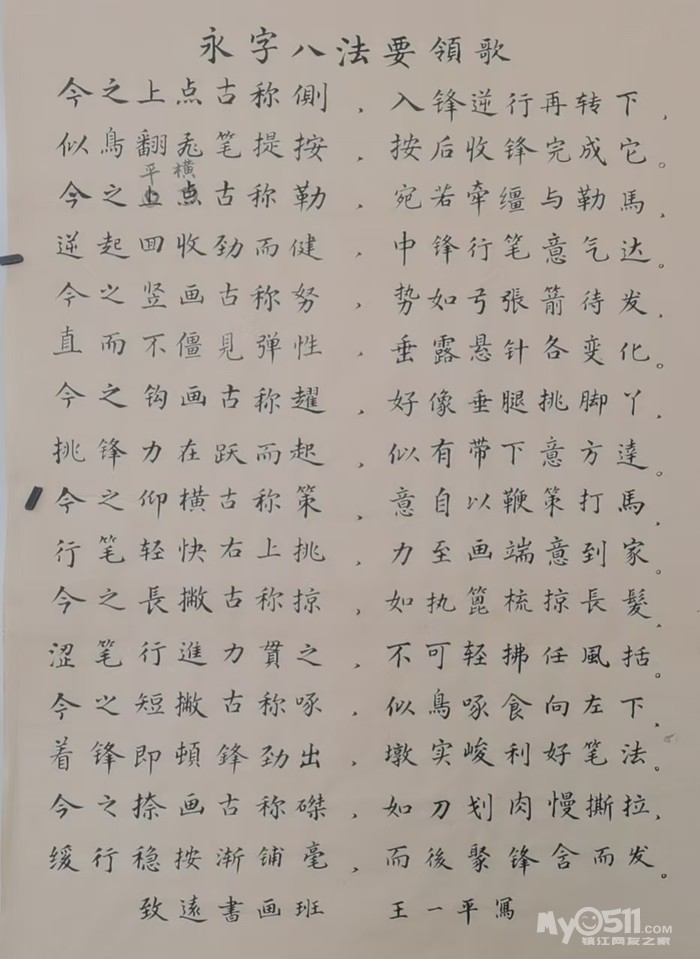 永字八法要領歌
今之上点古称側，入锋逆行再转下，
似鳥翻飛笔提按，按后收锋完成它。
平横
今之上点古称勒，宛若牵缰与勒馬，
逆起回收劲而健，中锋行笔意气达。
今之竖画古称努，势如弓張箭待发，
直而不僵見弹性，垂露悬针各变化。
今之钩画古称趯，好像垂腿挑脚丫，
挑锋力在跃而起，似有带下意方達。
今之仰横古称策，意自以鞭策打馬，
行笔轻快右上挑，力至画端意到家。
今之長撇古称掠，如执篦梳掠長髮，
涩笔行進力貫之，不可轻拂任風括。
今之短撇古称啄，似鳥啄食向左下，
着锋即頓鋒劲出，墩实峻利好笔法。
今之捺画古称磔，如刀划肉慢撕拉，
缓行稳按渐铺毫，而後聚锋含而发。
致遠書画班 王一平寫
My0511.com
镇江网友之家